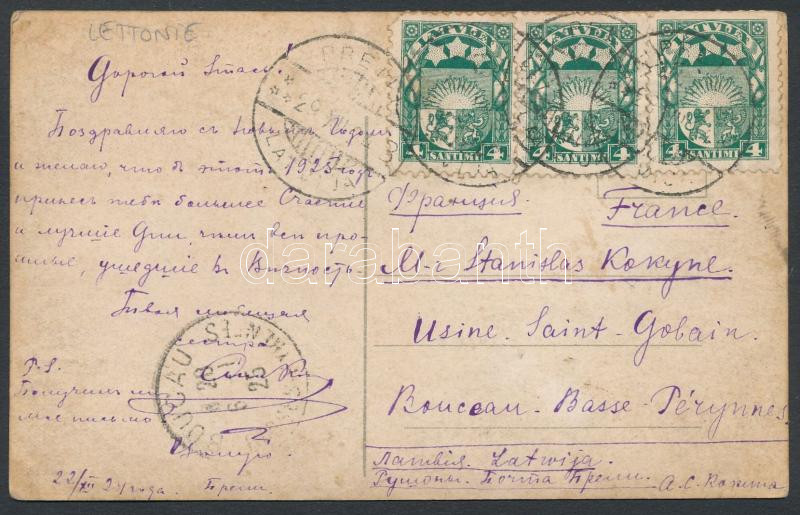 LETTONIE
Дорогой Стась!
Поздравляю съ Новымъ Годомъ
и желаю, что б этотъ 1925 годъ
принесъ тебѣ большее Счастіе
и лучшіе Дни, чѣмъ всѣ про-
шлые, ушедшіе въ Вѣчность.
Твоя любящая
сестра
P.S.
Получилъ ли
мое письмо
22/XII 24 года. Прели.
LATVIJA
4 SANTIMI 4
LATVIJA
4 SANTIMI 4
LATVIJA
4 SANTIMI 4
Франція. France.
M-r Stanislas Kokyne.
Usine. Saint-Gobain.
Bouceau-Basse-Pérynnes
Латвія. Latwija.
Рушоны. Почта Прели.
BOUCAU
darabanth.com